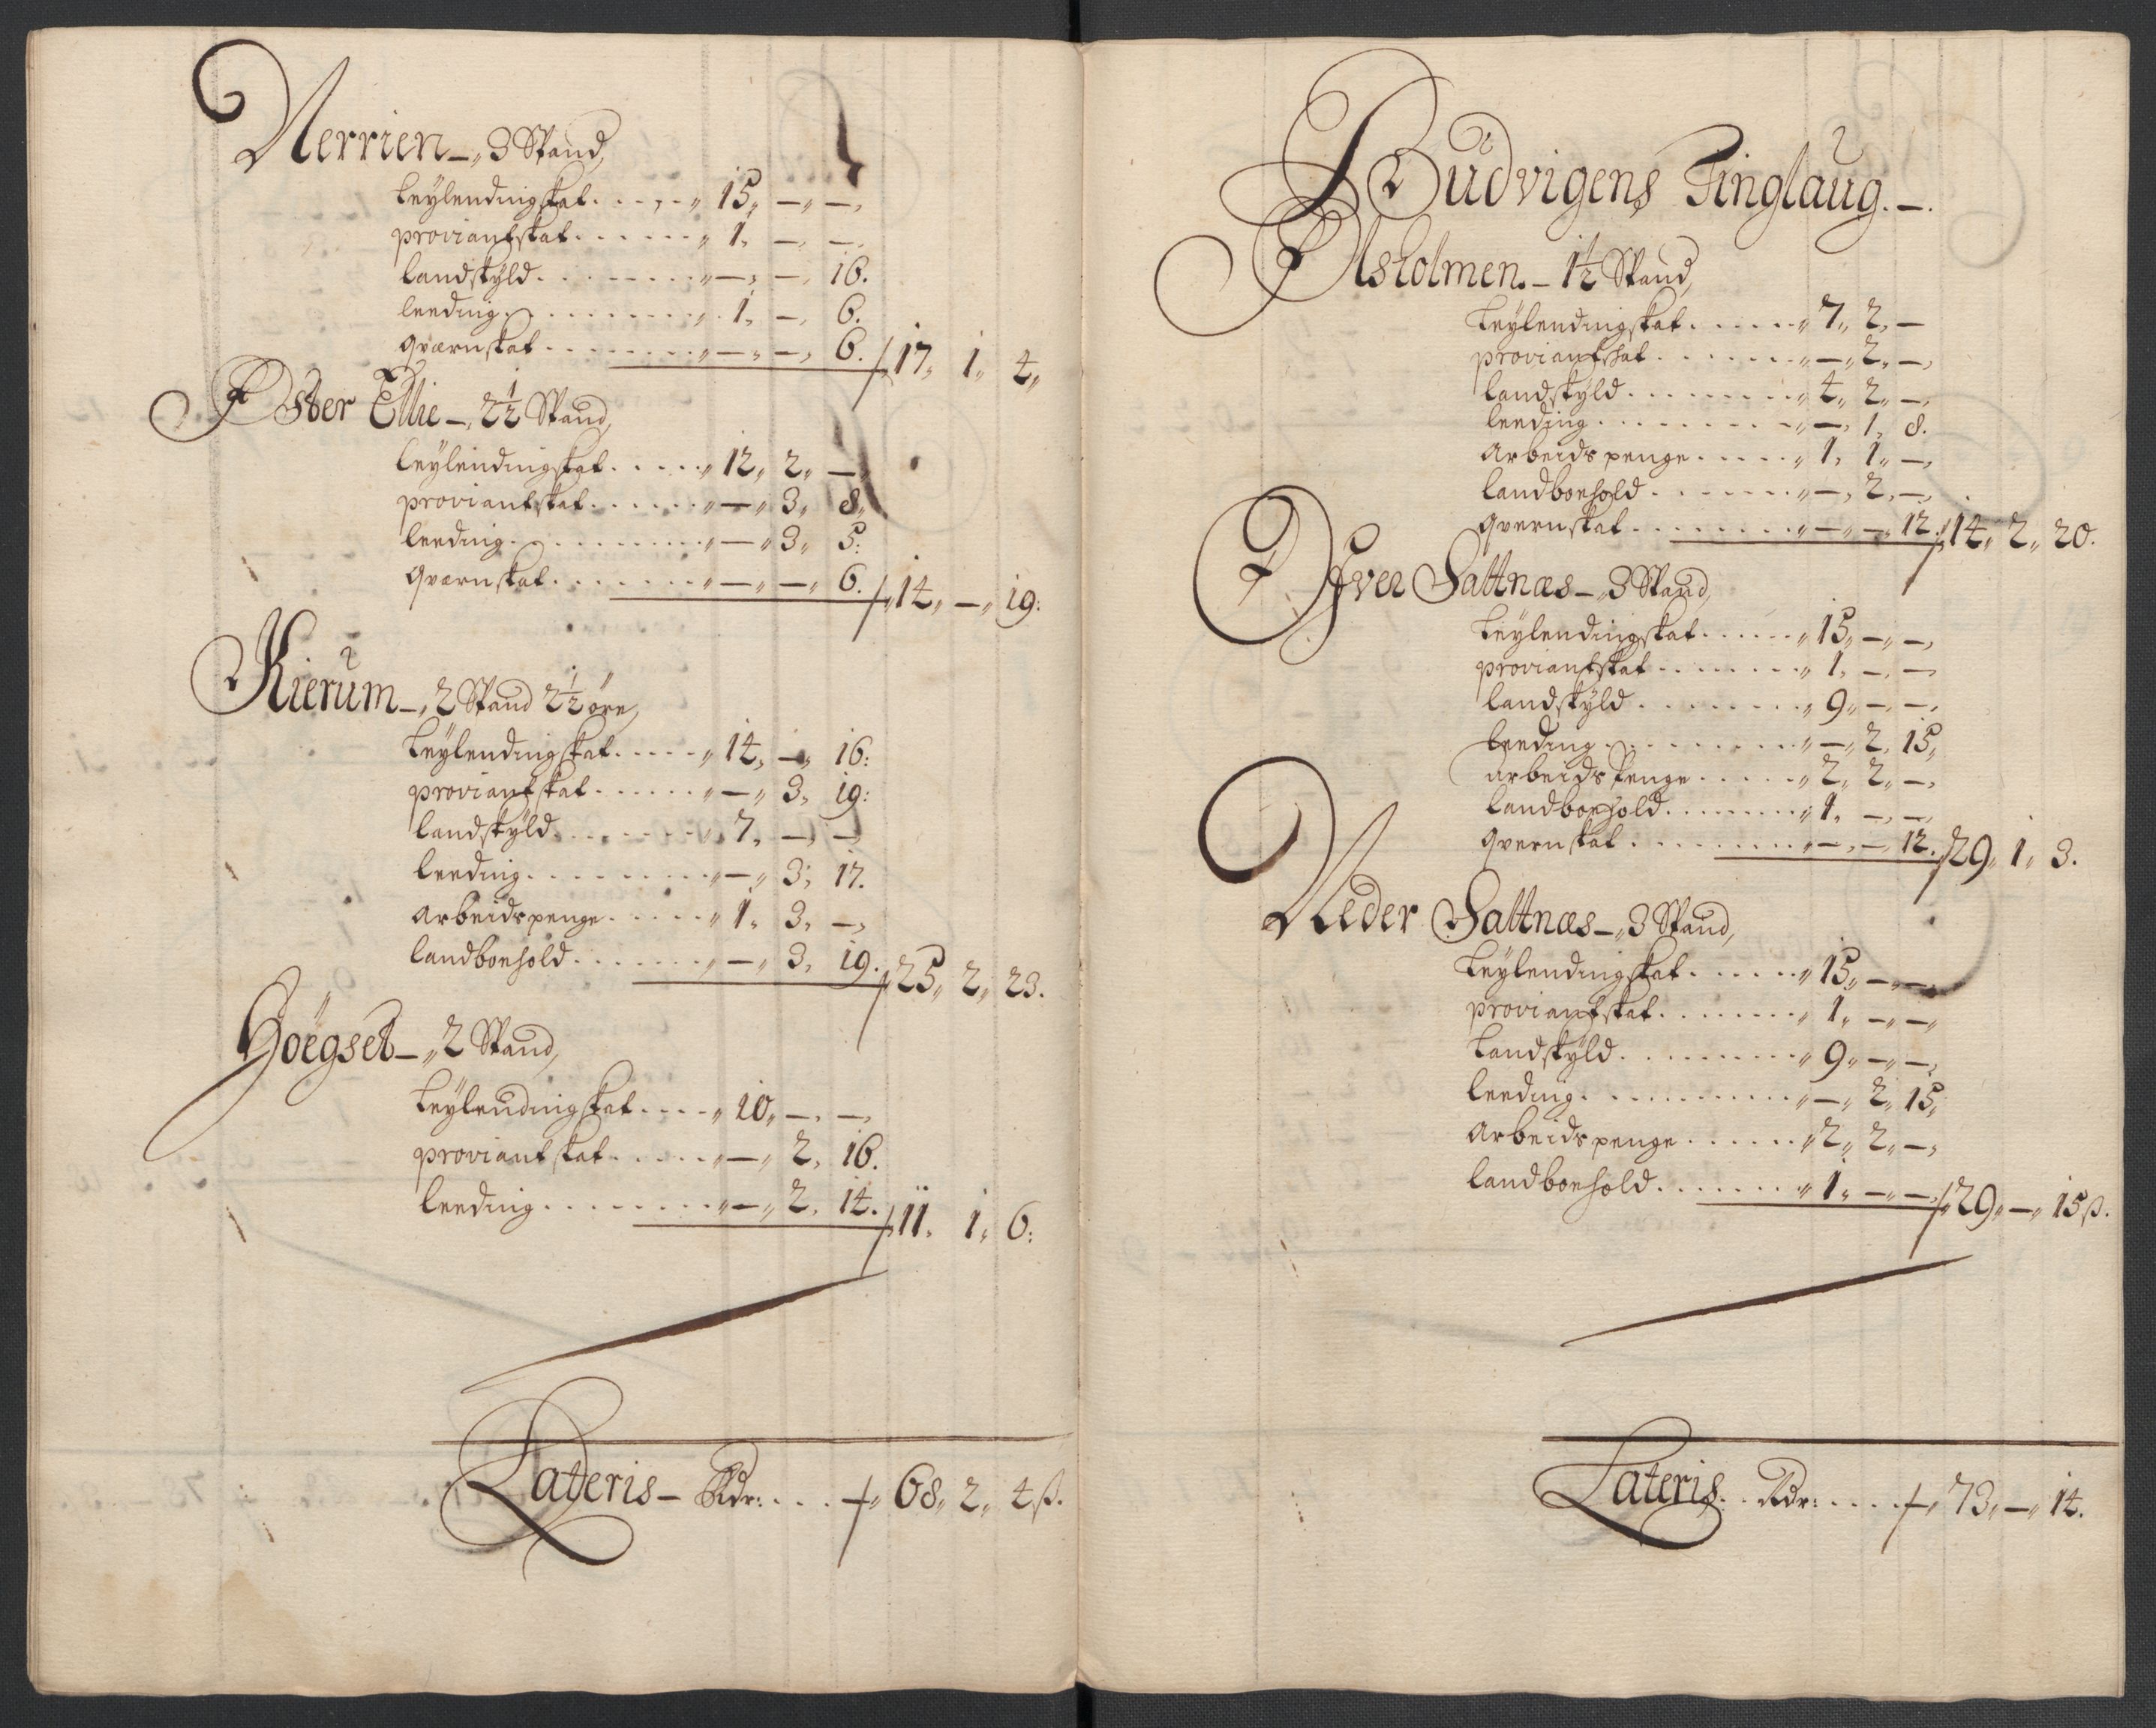 Nerrien –, 3 Spand,
leÿlendingskat . . . . . „ 15, – „ –,
proviantskat . . . . . . „ 1, –, –,
landskÿld . . . . . . . . . „ –, –, 16.
leeding . . . . . . . . . . „ 1, –, 6.
qværnskat . . . . . . . . „ – „ –, 6. 17, 1, 4„
Øster Ellie –, 2½ Spand,
leÿlendingskat . . . . . „ 12, 2, –
proviantskat . . . . . . „ – „ 3, 8,
leeding . . . . . . . . . . „ – „ 3, 5:
qværnskat . . . . . . . „ – „ –, 6. 14, –, 19:
Kierum –, 2 Spand 2½ øre,
leÿlendingskat . . . . . „ 14, –, 16:
proviantskat . . . . . . „ – „ 3, 19:
landskÿld . . . . . . . . „ 7, –, –
leeding . . . . . . . . . „ – „ 3, 17.
arbeidspenge . . . . . „ 1, 3, –,
landboehold . . . . . . . „ – „ 3, 19. 25, 2, 23.
Höegset – „ 2 Spand,
leÿlendingskat . . . . „ 10, –, –,
proviantskat . . . . . „ – „ 2, 16.
leeding . . . . . . . . . „ – „ 2, 14. 11, 1, 6:
Lateris – Rdr: . . . 68, 2, 4 ß.
Budvigens Tinglaug. –.
Øsholmen. – 1½ Spand,
leÿlendingskat . . . . . . „ 7, 2, –
proviantskat . . . . . . . „ –, 2, –,
landskÿld . . . . . . . . . „ 4, 2, –,
leeding . . . . . . . . . . „ –, 1, 8.
arbeids penge . . . . . „ 1, 1, –,
landboehold . . . . . . . „ –, 2, –,
qvernskat . . . . . . . . . „ – „ –, 12. 14, 2, 20.
Øfver Sattnæs –, 3 Spand,
leÿlendingskat . . . . . . „ 15, –, –,
proviantskat . . . . . . . . „ 1, –, –
landskÿld . . . . . . . . . „ 9, –, –,
leeding . . . . . . . . . . „ –, 2, 15,
arbeids penge . . . . . „ 2, 2, –,
landboehold . . . . . . . „ 1, –, –,
qvernskat . . . . . . . . . „ –, –, 12. 29, 1, 3.
Neder Sattnæs –, 3 Spand,
leÿlendingskat . . . . . . „ 15, –, –,
proviantskat . . . . . . . . „ 1, –, –,
landskÿld . . . . . . . . . . „ 9, –, –,
leeding . . . . . . . . . . . „ –, 2, 15,
arbeids penge . . . . . . „ 2, 2, –,
landboehold . . . . . . . „ 1, –, –, 29, –, 15 ß.
Lateris. . Rdr: . . . . 73, –, 14.